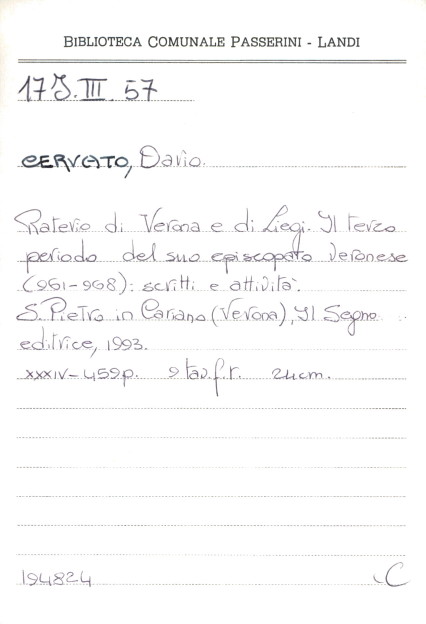 BIBLIOTECA COMUNALE PASSERINI - LANDI
17J.III.57
CERVATO, Dario.
Raterio di Verona e di Liegi. Il terzo
periodo del suo episcopato veronese
(961-968): scritti e attività.
S. Pietro in Cariano (Verona), Il Segno
editrice, 1993.
XXXIV-459p. 9 tav.f.t. 24cm.
194824 C